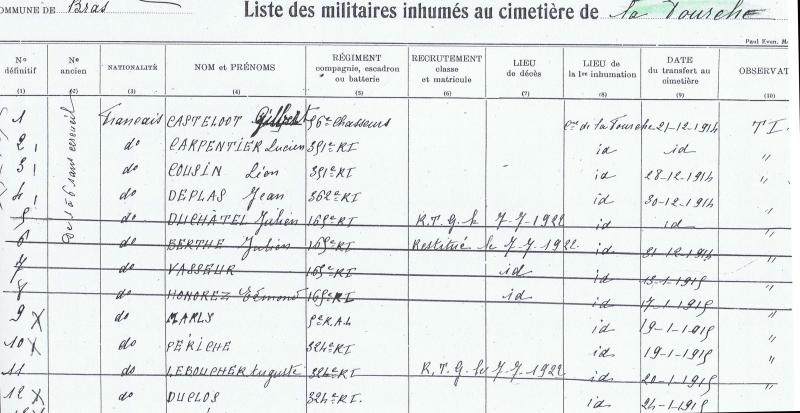 COMMUNE DE Bras Liste des militaires inhumés au cimetière de la Fourche
Paul Even, M
N° définitif N° ancien NATIONALITÉ NOM et PRÉNOMS RÉGIMENT compagnie, escadron ou batterie RECRUTEMENT classe et matricule LIEU de décès LIEU de la 1re inhumation DATE du transfert au cimetière OBSERVAT
(1) (2) (3) (4) (5) (6) (7) (8) (9) (10)
De 1 à 6 sans cercueil
1 Français CASTELOOT Gilbert 56e Chasseurs Cre de la Fourche 21-12-1914 T I.
2 do CARPENTIER Lucien 351e RI id id "
3 do COUSIN Léon 351e RI id 28-12-1914 "
4 do DEPLAS Jean 362e RI id 30-12-1914 "
5 do DUCHÂTEL Julien 165e RI R.T.G. le 7-7-1922 id id "
6 do BERTHE Julien 165e RI Restitué le 7-7-1922 id 31-12-1914 "
7 do VASSEUR 165e RI id id 13-1-1915 "
8 do HONOREZ Edmond 165e RI id id 17-1-1915 "
9 X do MARLY 5e R.A. id 19-1-1915 "
10 X do PÉRICHE 324e RI id 19-1-1915 "
11 do LEBOUCHER Auguste 324e RI R.T.G. le 7-7-1922 id 20-1-1915 "
12 X do DUCLOS 324e RI. id 24-1-1915 "